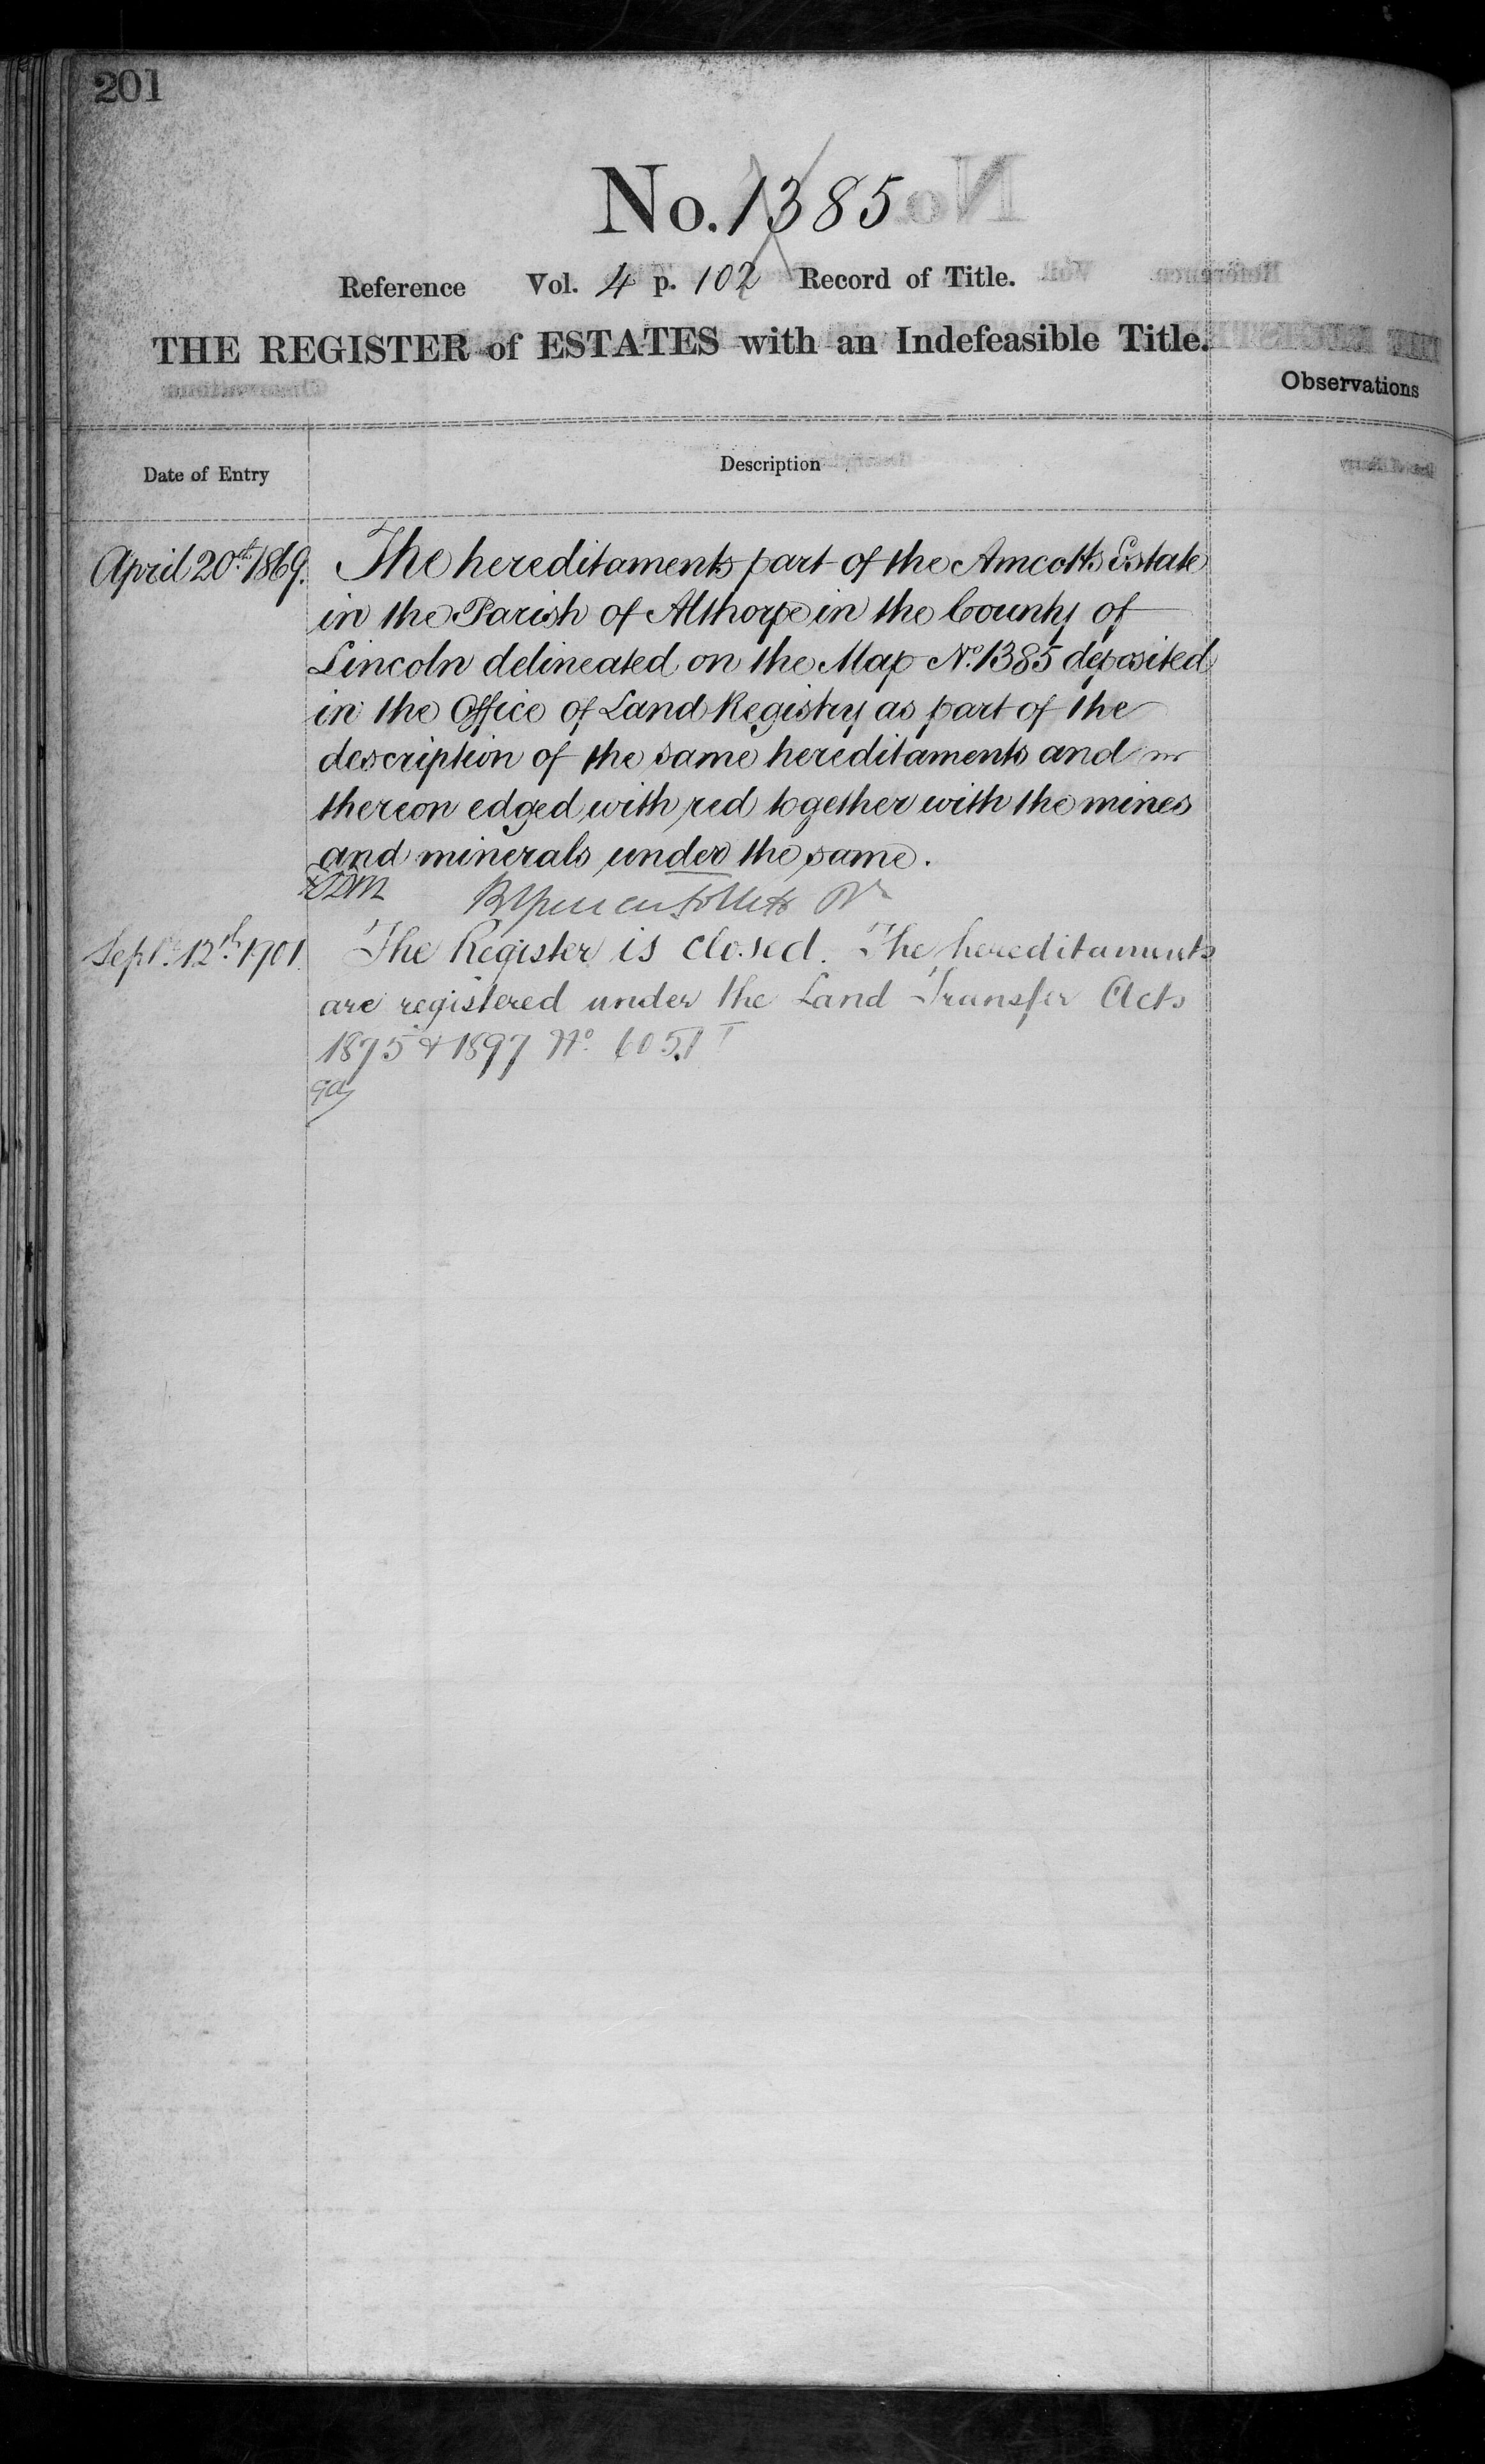 201
No. 1385
Reference Vol. 4 p. 102 Record of Title.
THE REGISTER of ESTATES with an Indefeasible Title.
Observations
Date of Entry
Description
April 20th 1869. The hereditaments part of the Amcotts Estate
in the Parish of Althorpe in the County of
Lincoln delineated on the Map No. 1385 deposited
in the Office of Land Registry as part of the
description of the same hereditaments and
thereon edged with red together with the mines
and minerals under the same.
Sept. 12th 1901. The Register is closed. The hereditaments
are registered under the Land Transfer Acts
1875 & 1897 No. 6051